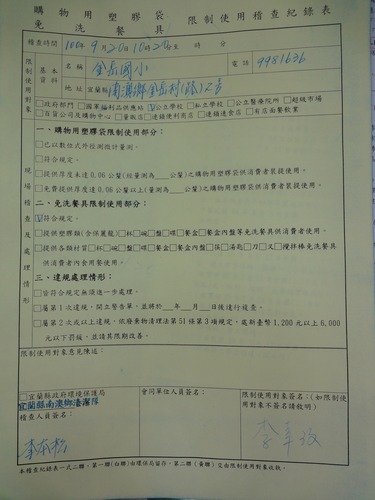 購物用塑膠袋
免洗餐具 限制使用稽查紀錄表
稽查時間 100年9月20日10時2分至 時 分
限制使用對象
基本資料
名稱 金岳國小
電話 9981636
地址 宜蘭縣南澳鄉金岳村(路)2號
□政府部門 □國軍福利品供應站 ☑公立學校 □私立學校 □公立醫療院所 □超級市場
□百貨公司及購物中心 □量販店 □連鎖便利商店 □連鎖速食店 □有店面餐飲業
現場稽查及處理情形
一、購物用塑膠袋限制使用部分：
□已以數位式外徑測微計量測。
□符合規定。
□提供厚度未達0.06公釐(經量測為___公釐)之購物用塑膠袋供消費者裝提使用。
□免費提供厚度達0.06公釐以上(量測為___公釐)之購物用塑膠袋供消費者裝提使用。
二、免洗餐具限制使用部分：
☑符合規定。
□提供塑膠類(含保麗龍)□杯□碗□盤□碟□餐盒□餐盒內盤等免洗餐具供消費者使用。
□提供各類材質□杯□碗□盤□碟□餐盒□餐盒內盤□筷□湯匙□刀□叉□攪拌棒免洗餐具
供消費者內食用餐使用。
三、違規處理情形：
□皆符合規定無須進一步處理。
□屬第1次違規，開立警告單，並將於___年___月___日後進行複查。
□屬第2次或以上違規，依廢棄物清理法第51條第3項規定，處新臺幣1,200元以上6,000
元以下罰鍰，並請其限期改善。
限制使用對象意見陳述：
□宜蘭縣政府環境保護局
宜蘭縣南澳鄉清潔隊
稽查人員簽名：
會同單位人員簽名：
限制使用對象簽名：(如限制使
用對象不簽名請敘明)
本稽查紀錄表一式二聯，第一聯(白聯)由環保局留存，第二聯(黃聯)交由限制使用對象收執。